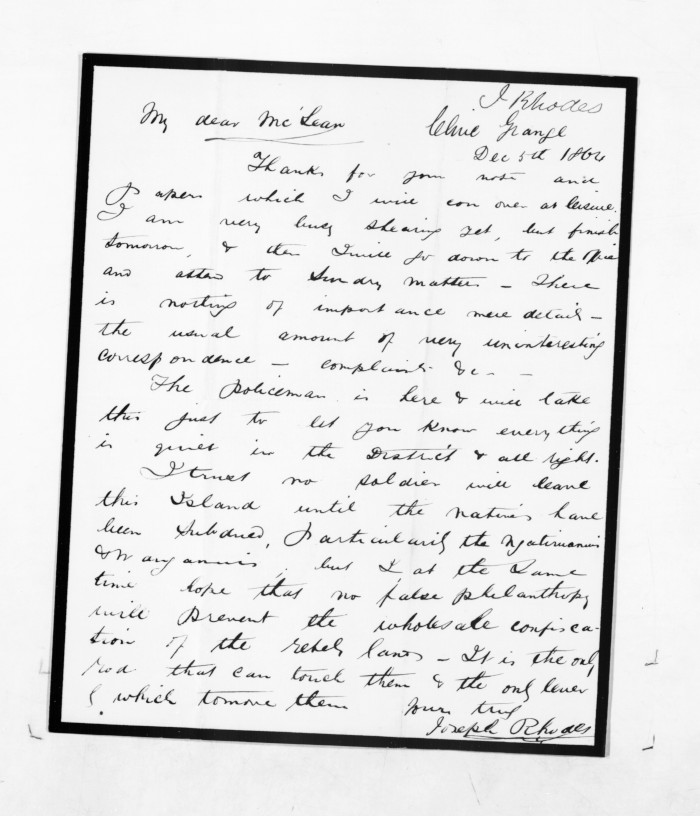 J Rhodes
My dear McLean Clive Grange
Dec 5th 1864
Thanks for your note and
Papers which I will con over at leisure.
I am very busy shearing yet, but finish
tomorrow, & then I will go down to the office
and attend to Sundry matters - There
is nothing of importance mere detail -
the usual amount of very uninteresting
correspondence - complaints &c - -
The Policeman is here & will take
this just to let you know everything
is quiet in the District & all right.
I trust no soldier will leave
this Island until the natives have
been Subdued, Particularly the Ngatiruanuis
& Wanganuis, but I at the Same
time hope that no false philanthropy
will prevent the wholesale confisca-
tion of the rebels lands - It is the only
rod that can touch them & the only lever
by which to move them Yours truly
Joseph Rhodes